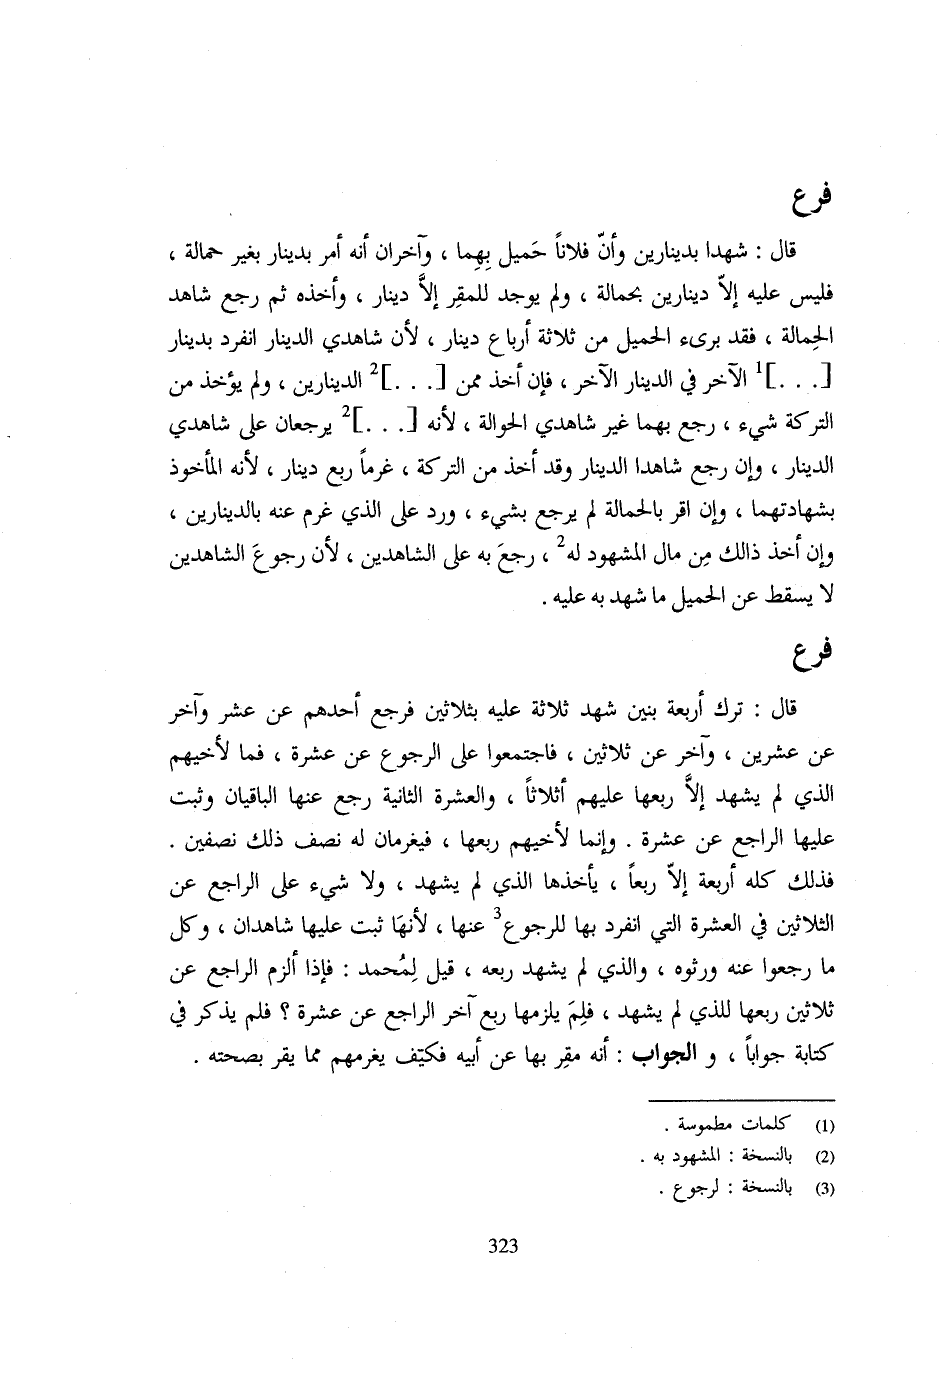 فرع
قال : شهدا بدينارين وأنّ فلاناً حَميل بِهِما ، وآخران أنه أمر بدينار بغير حمالة ،
فليس عليه إلاّ دينارين بحمالة ، ولم يوجد للمقِر إلاَّ دينار ، وأخذه ثم رجع شاهد
الحِمالة ، فقد برىء الحميل من ثلاثة أرباع دينار ، لأن شاهدي الدينار انفرد بدينار
[. . .]1 الآخر في الدينار الآخر ، فإن أخذ ممن [. . .]2 الدينارين ، ولم يؤخذ من
التركة شيء ، رجع بهما غير شاهدي الحوالة ، لأنه [. . .]2 يرجعان على شاهدي
الدينار ، وإن رجع شاهدا الدينار وقد أخذ من التركة ، غرماً ربع دينار ، لأنه المأخوذ
بشهادتهما ، وإن اقر بالحمالة لم يرجع بشيء ، ورد على الذي غرم عنه بالدينارين ،
وإن أخذ ذالك مِن مال المشهود له2 ، رجعَ به على الشاهدين ، لأن رجوعَ الشاهدين
لا يسقط عن الحميل ما شهد به عليه .
فرع
قال : ترك أربعة بنين شهد ثلاثة عليه بثلاثين فرجع أحدهم عن عشر وآخر
عن عشرين ، وآخر عن ثلاثين ، فاجتمعوا على الرجوع عن عشرة ، فما لأخيهم
الذي لم يشهد إلاَّ ربعها عليهم أثلاثاً ، والعشرة الثانية رجع عنها الباقيان وثبت
عليها الراجع عن عشرة . وإنما لأخيهم ربعها ، فيغرمان له نصف ذلك نصفين .
فذلك كله أربعة إلاّ ربعاً ، يأخذها الذي لم يشهد ، ولا شيء على الراجع عن
الثلاثين في العشرة التي انفرد بها للرجوع3 عنها ، لأنهَا ثبت عليها شاهدان ، وكل
ما رجعوا عنه ورثوه ، والذي لم يشهد ربعه ، قيل لِمُحمد : فإذا ألزم الراجع عن
ثلاثين ربعها للذي لم يشهد ، فلِمَ يلزمها ربع آخر الراجع عن عشرة ؟ فلم يذكر في
كتابة جواباً ، و الجواب : أنه مقِر بها عن أبيه فكيَف يغرمهم مما يقر بصحته .
(1) كلمات مطموسة .
(2) بالنسخة : المشهود به .
(3) بالنسخة : لرجوع .
323